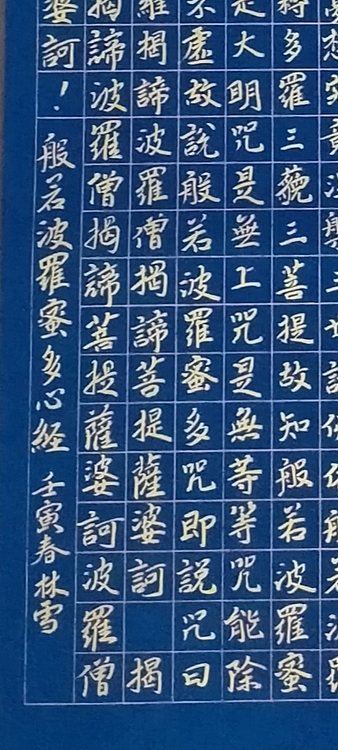 多羅三藐三菩提故知般若波羅蜜
是大明咒是無上咒是無等等咒能除
不虛故說般若波羅蜜多咒即說咒曰
羅揭諦波羅僧揭諦菩提薩婆訶 揭
揭諦波羅僧揭諦菩提薩婆訶波羅僧
婆訶！般若波羅蜜多心經 壬寅春林雪